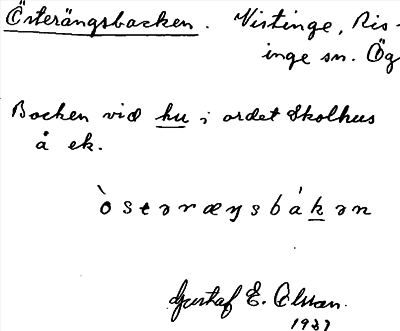 Österängsbacken. Vistinge, Ris-
inge sn. Ög
Backen vid hu i ordet Skolhus
å ek.
òstəræŋsbákən
Gustaf E. Olsson.